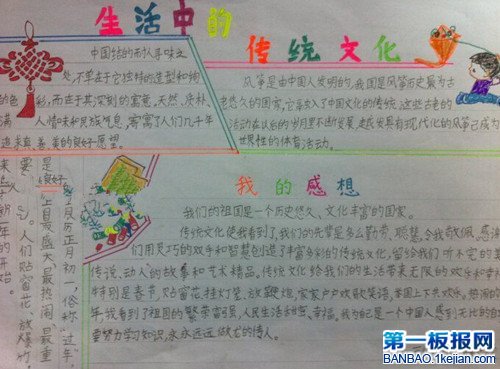 生活中的
传统文化
中国结的耐人寻味之
处,不单在于它独特的造型和绚
的色彩,而在于其深刻的寓意,天然、质朴、
满人情味和民族气息,寄寓了人们几千年
追求真善美的良好愿望。
风筝是由中国人发明的,我国是风筝历史最为古
老悠久的国家,它导入了中国文化的传统,这些古老的
活动在以后的岁月里不断发展,走民具有现代化的风筝已成为
世界性的体育活动。
我的感想
我们的祖国是一个历史悠久、文化丰富的国家。
传统文化使我看到了,我们的先辈是多么勤劳、聪慧,令我敬佩,感谢
们用灵巧的双手和智慧创造了丰富多彩的传统文化,留给我们听不完的
传说,动人的故事和艺术精品。传统文化给我们的生活带来无限的欢乐和
特别是春节,贴窗花、挂灯笼、放鞭炮,家家户户欢歌笑语,举国上下共欢乐。热闹的
年,我看到了祖国的繁荣富强,人民生活和甜蜜、幸福。我为自己是一个中国人感到无比的自
要努力学习知识,永永远远做龙的传人。
每年农历正月初一,俗称"过年",
是一年
上最盛大、最热闹、最重
要
人们贴窗花、放爆竹
来
新年的开始。
第一板报网
BANBAO.1kejian.com